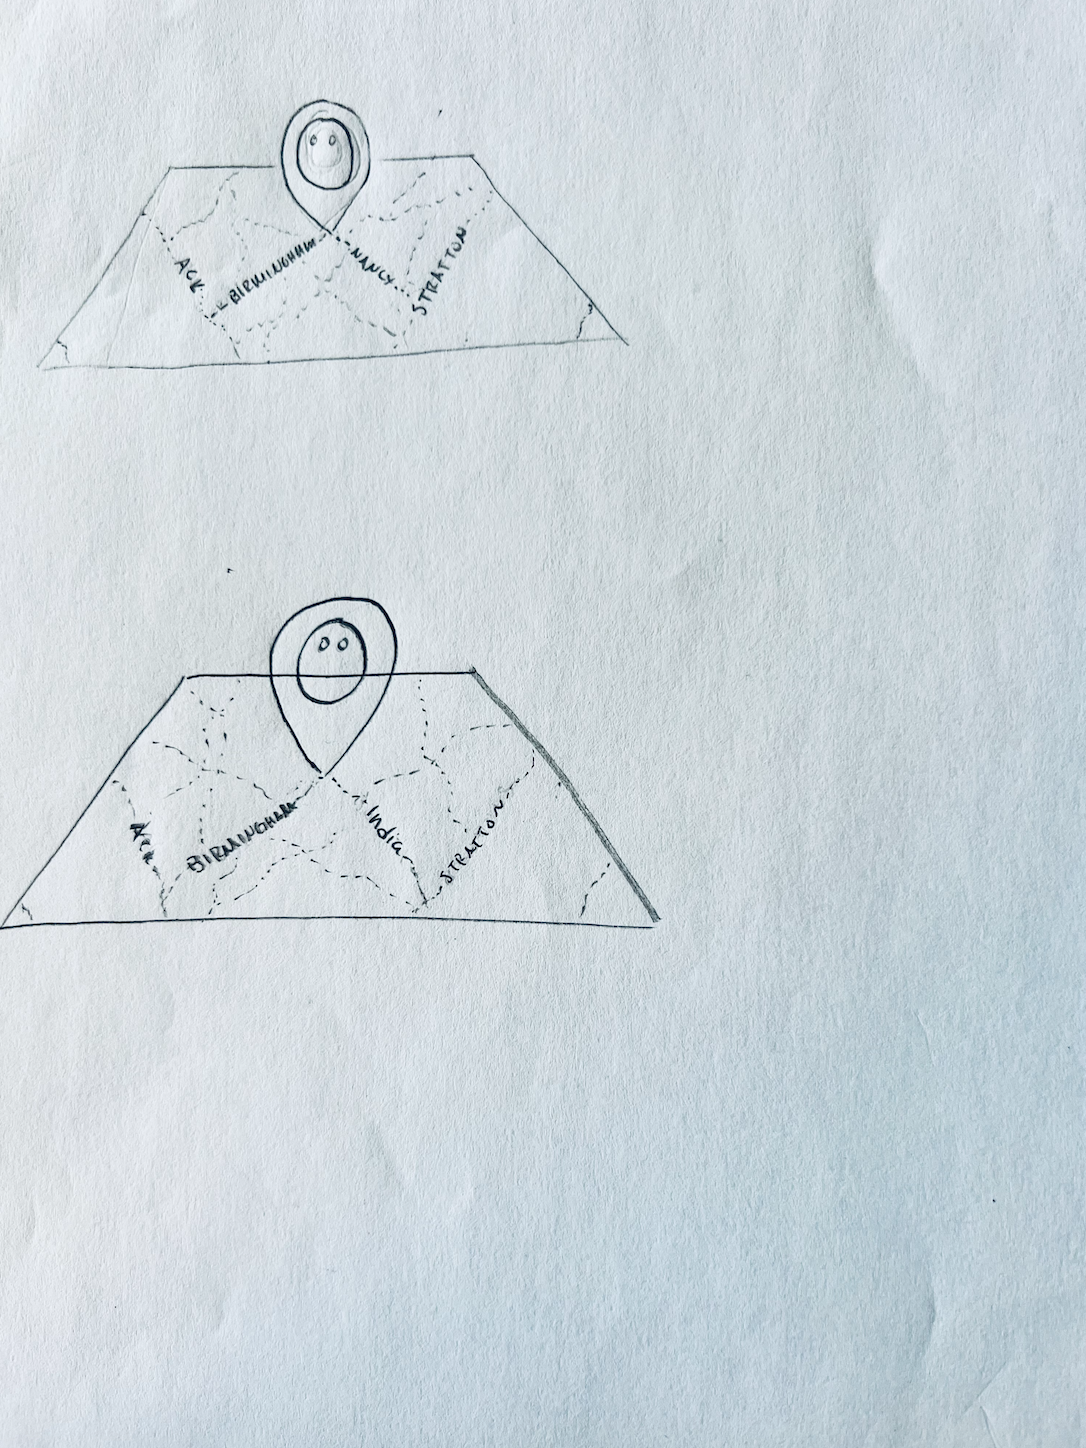 ACK
BIRMINGHAM
NANCY
STRATTON
ACK
BIRMINGHAM
India
STRATTON